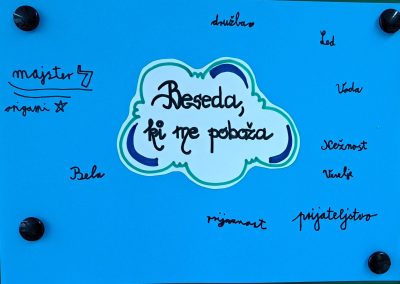 družba
Led
majster
Voda
origami
Beseda,
ki me poboža
Nežnost
Veselje
Bela
prijaznost
prijateljstvo